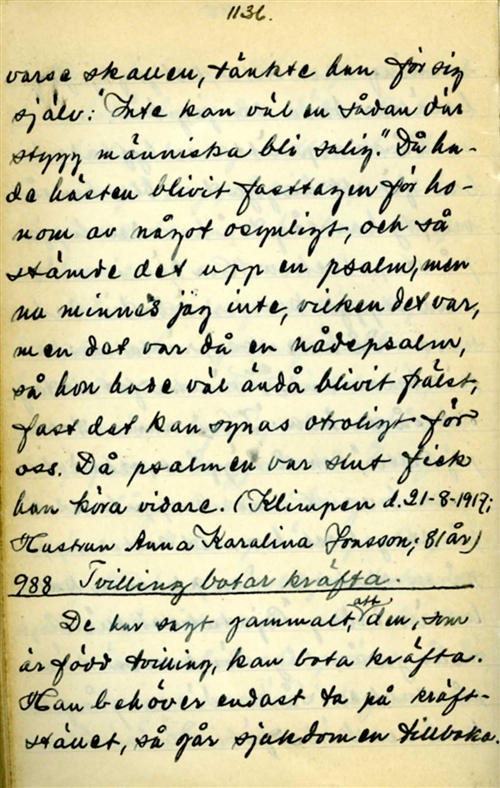 1136.
varse skallen, tänkte han för sig
själv: "Inte kan väl en sådan där
stygg människa bli salig." Då ha-
de hästen blivit fasttagen för ho-
nom av något osynligt, och så
stämde det upp en psalm, men
nu minnes jag inte, vilken det var,
men det var då en nådepsalm,
så hon hade väl ändå blivit frälst,
fast det kan synas otroligt för
oss. Då psalmen var slut fick
han köra vidare. (Klimpen d. 21-8-1917;
Hustrun Anna Karolina Jonsson; 81 år)
988 Tvilling botar kräfta.
De har sagt gammalt, att den, som
är född tvilling, kan bota kräfta.
Han behöver endast ta på kräft-
stället, så går sjukdomen tillbaka.